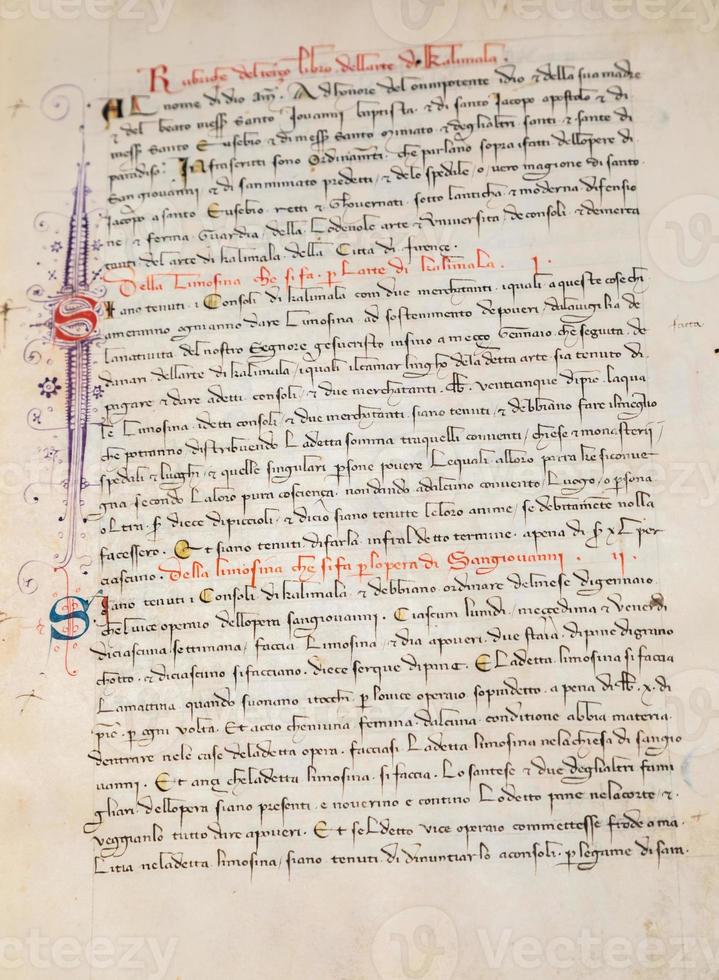 Rubriche del terzo libro dellarte di kalimala.
AL nome di dio Am. Adhonore del omnipotente idio & della sua madre
& del beato mess Santo Iouanni baptista & di santo Jacopo apostolo & di
mess Santo Eusebio & di mess Santo miniato & deghaltri santi & sante di
paradiso. Infrascritti sono Ordinamti che parlano sopra ifatti dellopere di
San giouanni & di sanminiato predetti & delo spedale o vero magione di santo
Jacopo a santo Eusebio retti & Ghouernati sotto lanticha & moderna difensio
ne & ferma Guardia della Lodeuole arte & Vniuersita de consoli & demerca
tanti del arte di kalimala della Citta di firence.
Della Limosina che si fa p larte di kalimala. I.
Siano tenuti i Consoli di kalimala com due merchatanti iquali aqueste cose chi
ameranno ogni anno dare Limosina ad sostenimento depoueri dalauigilia de
lanatiuita del nostro Segnore giesucristo insino a mecço Gennaio che seguita de
danari dellarte di kalimala iquali ilcamarlingho deladetta arte sia tenuto di
pagare & dare adetti consoli & due merchatanti lb. venticinque dipic. laqua
le Limosina idetti consoli & due merchatanti siano tenuti & debbiano fare ilmeglio
che potranno distribuendo Ladetta somma traquelli conuenti chiese & monasterii
spedali & luoghi & quelle singulari psone pouere Lequali alloro parra che siconuen
gna secondo Laloro pura coscienca. non dando adalcuno conuento Luogo o psona
oltra s. diece dipiccioli & dicio siano tenute leloro anime se debitamente nolla
facessero. Et siano tenuti difarla infral detto termine apena di s xl per
ciascuno. Della limosina che si fa p lopera di Sangiouanni. II.
Siano tenuti i Consoli di kalimala & debbiano ordinare delmese digennaio
chel uice operaio dellopera sangiouanni. Ciascun lundi, meççedima & venerdi
diciascuna settimana faccia Limosina & dia apoueri due staia dipane digrano
chotto & diciascuno sifacciano diece serque dipani. E Ladetta limosina sifaccia
Lamattina quando suonano itocchi p louice operaio sopradetto apena di lb. x. di
pic. p ogni volta. Et accio cheniuna femina dalcuna conditione abbia materia
dentrare nele case deladetta opera facciasi Ladetta limosina nela chiesa di sangio
uanni. Et anci cheladetta limosina si faccia. Lo santese & due deghaltri fami
gliari dellopera siano presenti e nouerino e contino Lodetto pane nelacorte &
veggianlo tutto dare apoueri. Et se Ldetto vice operaio commettesse frode o ma
Litia neladetta limosina siano tenuti di dinuntiarlo aconsoli p legame di sam.
facta
Vecteezy